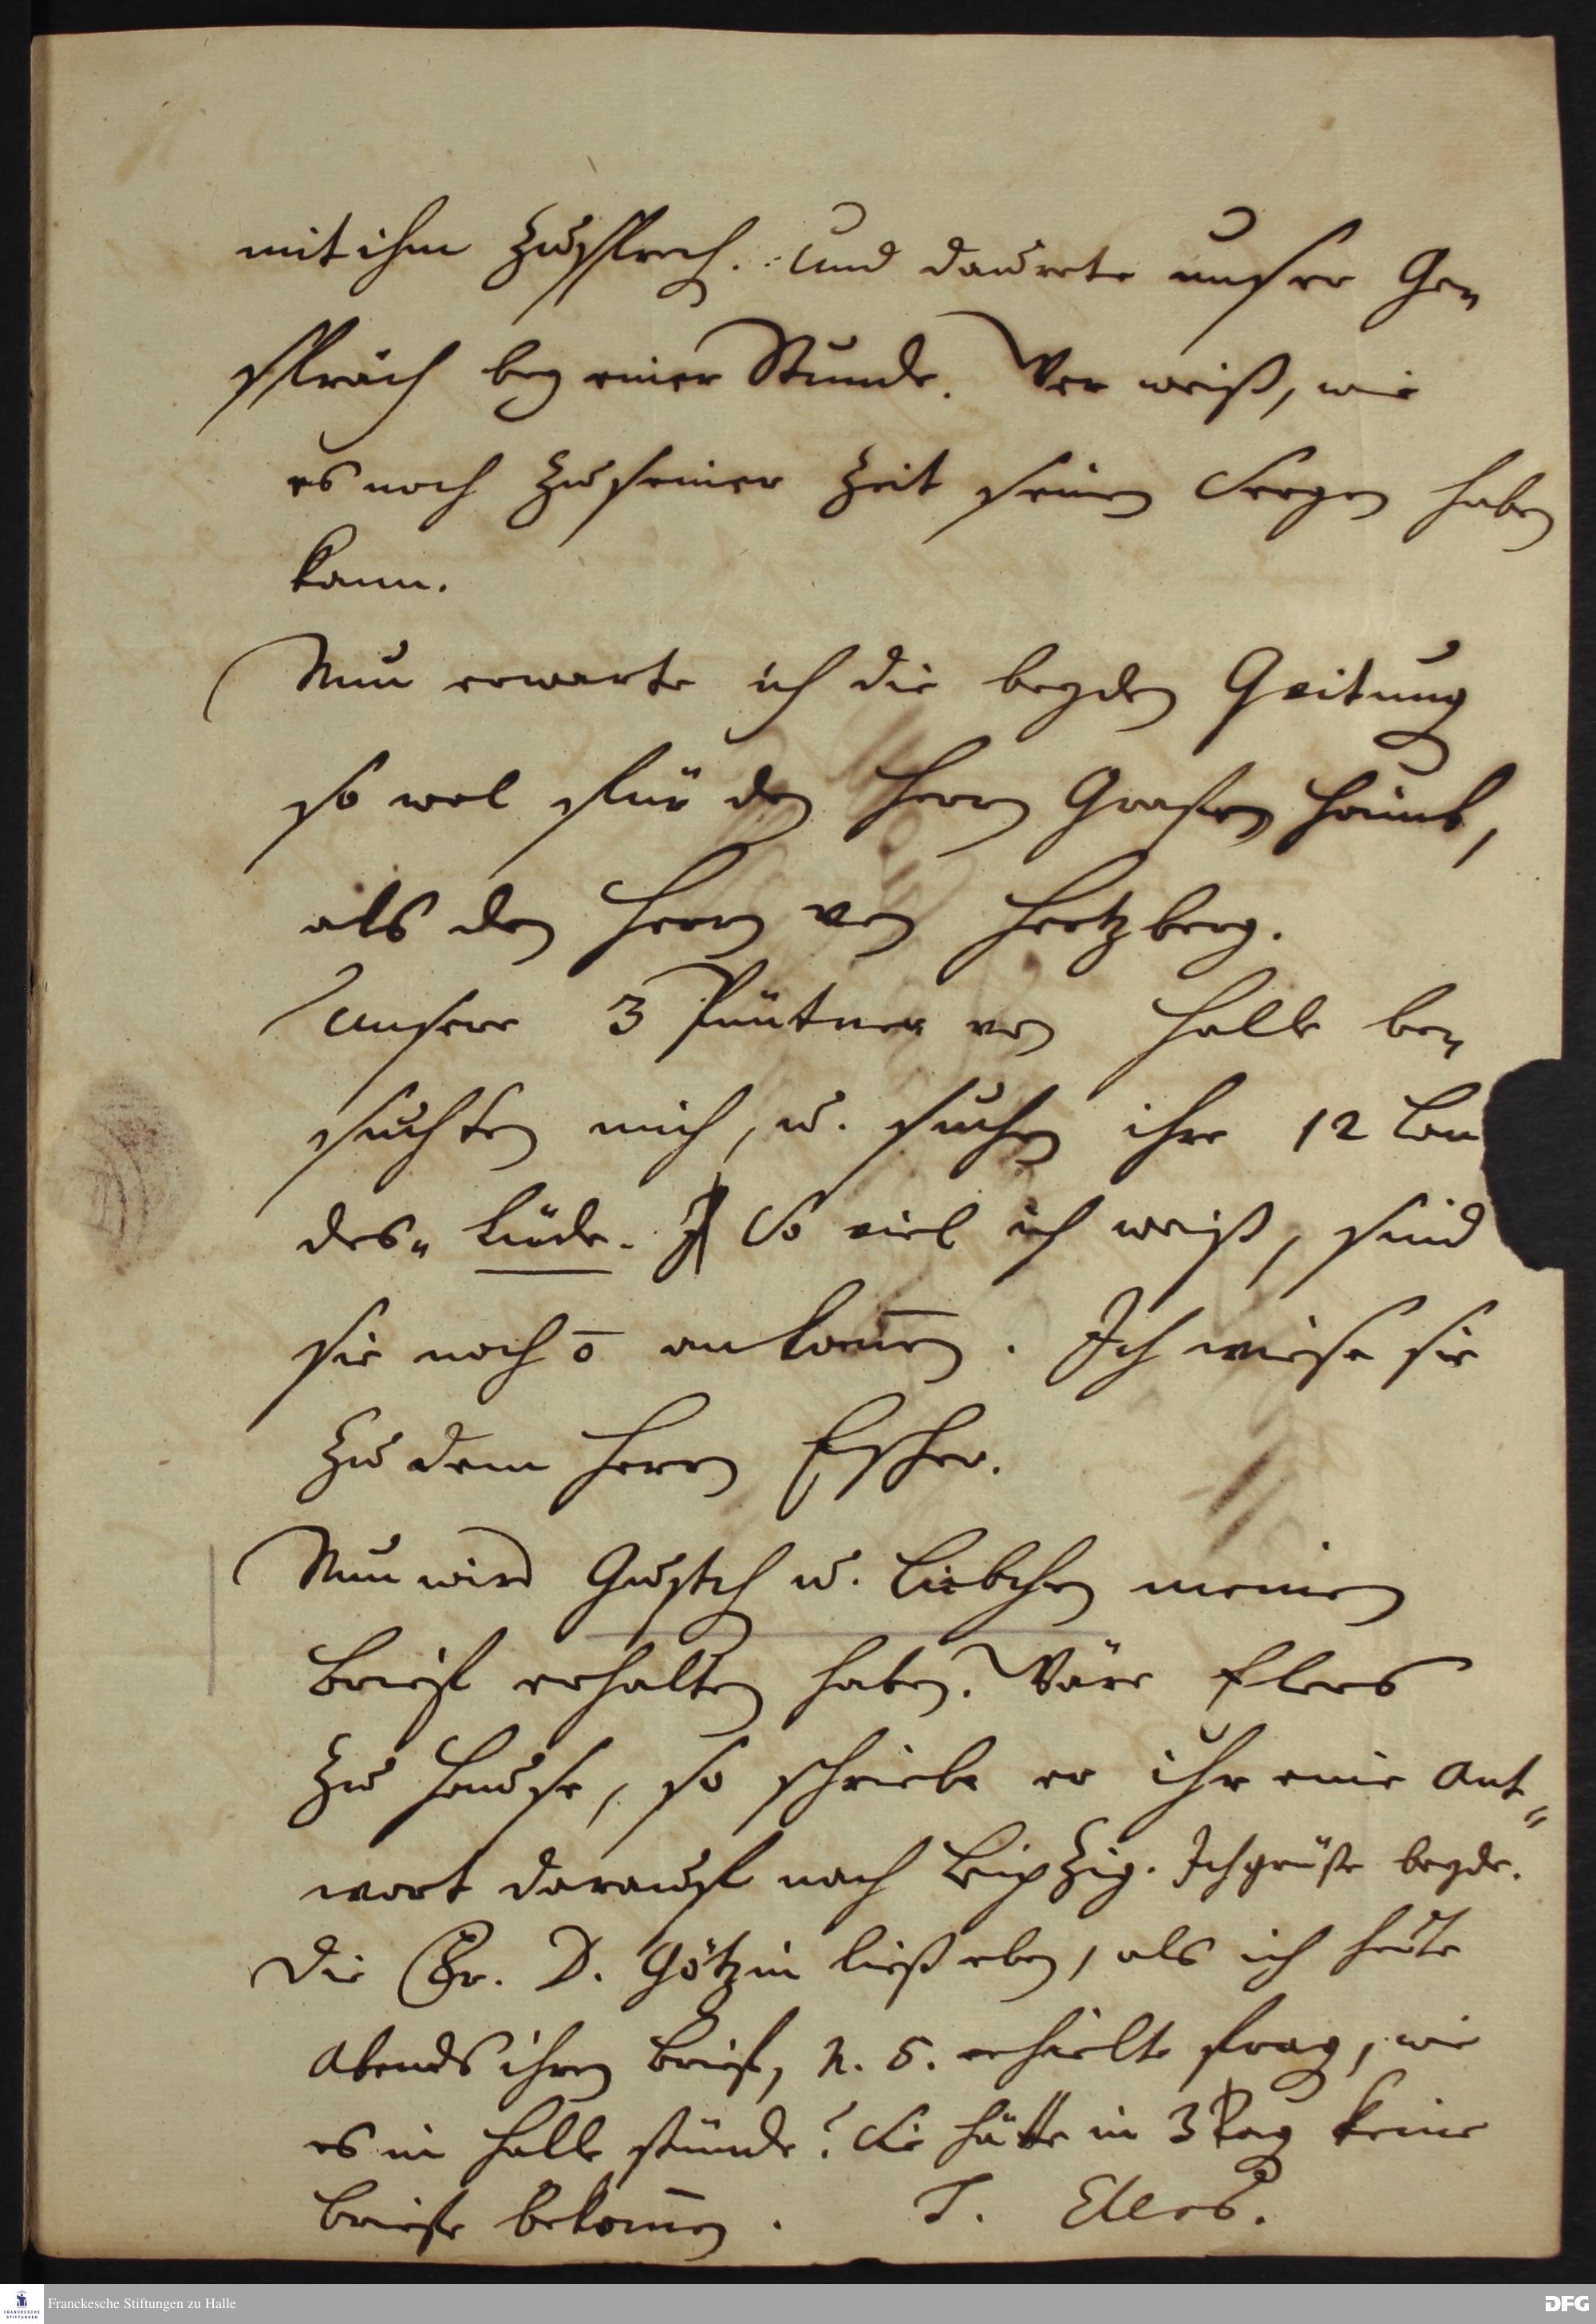 mit ihm zusprech. Und daurete unser Ge-
spräch bey einer Stunde. Wer weiß, wie
es noch zu seiner Zeit seinen Seegen haben
kann.
Nun erwarte ich die beyden Zeitung
so wol für den Herrn Grafen
als den Herrn von Hertzberg.
Unsere 3 von Halle be-
suchten mich, u. suchen ihre 12 Lan
des- So viel ich weiß, sind
sie noch o ankom̄en. Ich wiese sie
zu dem Herrn
Nun wird Gustch u. Liebchen meinen
Brief erhalten haben. Wäre Elers
zu Hause, so schriebe er ihr eine Ant=
wort darauf nach Leipzig. Ich grüße beyde.
Die Fr. D. Götzin ließ eben, als ich heute
Abends ihren Brief, n. 5. erhielte frag, wie
es in Halle stünde? Sie hätte in 3 Tag keine
Briefe bekom̄en. T. Elers.
Franckesche Stiftungen zu Halle
DFG